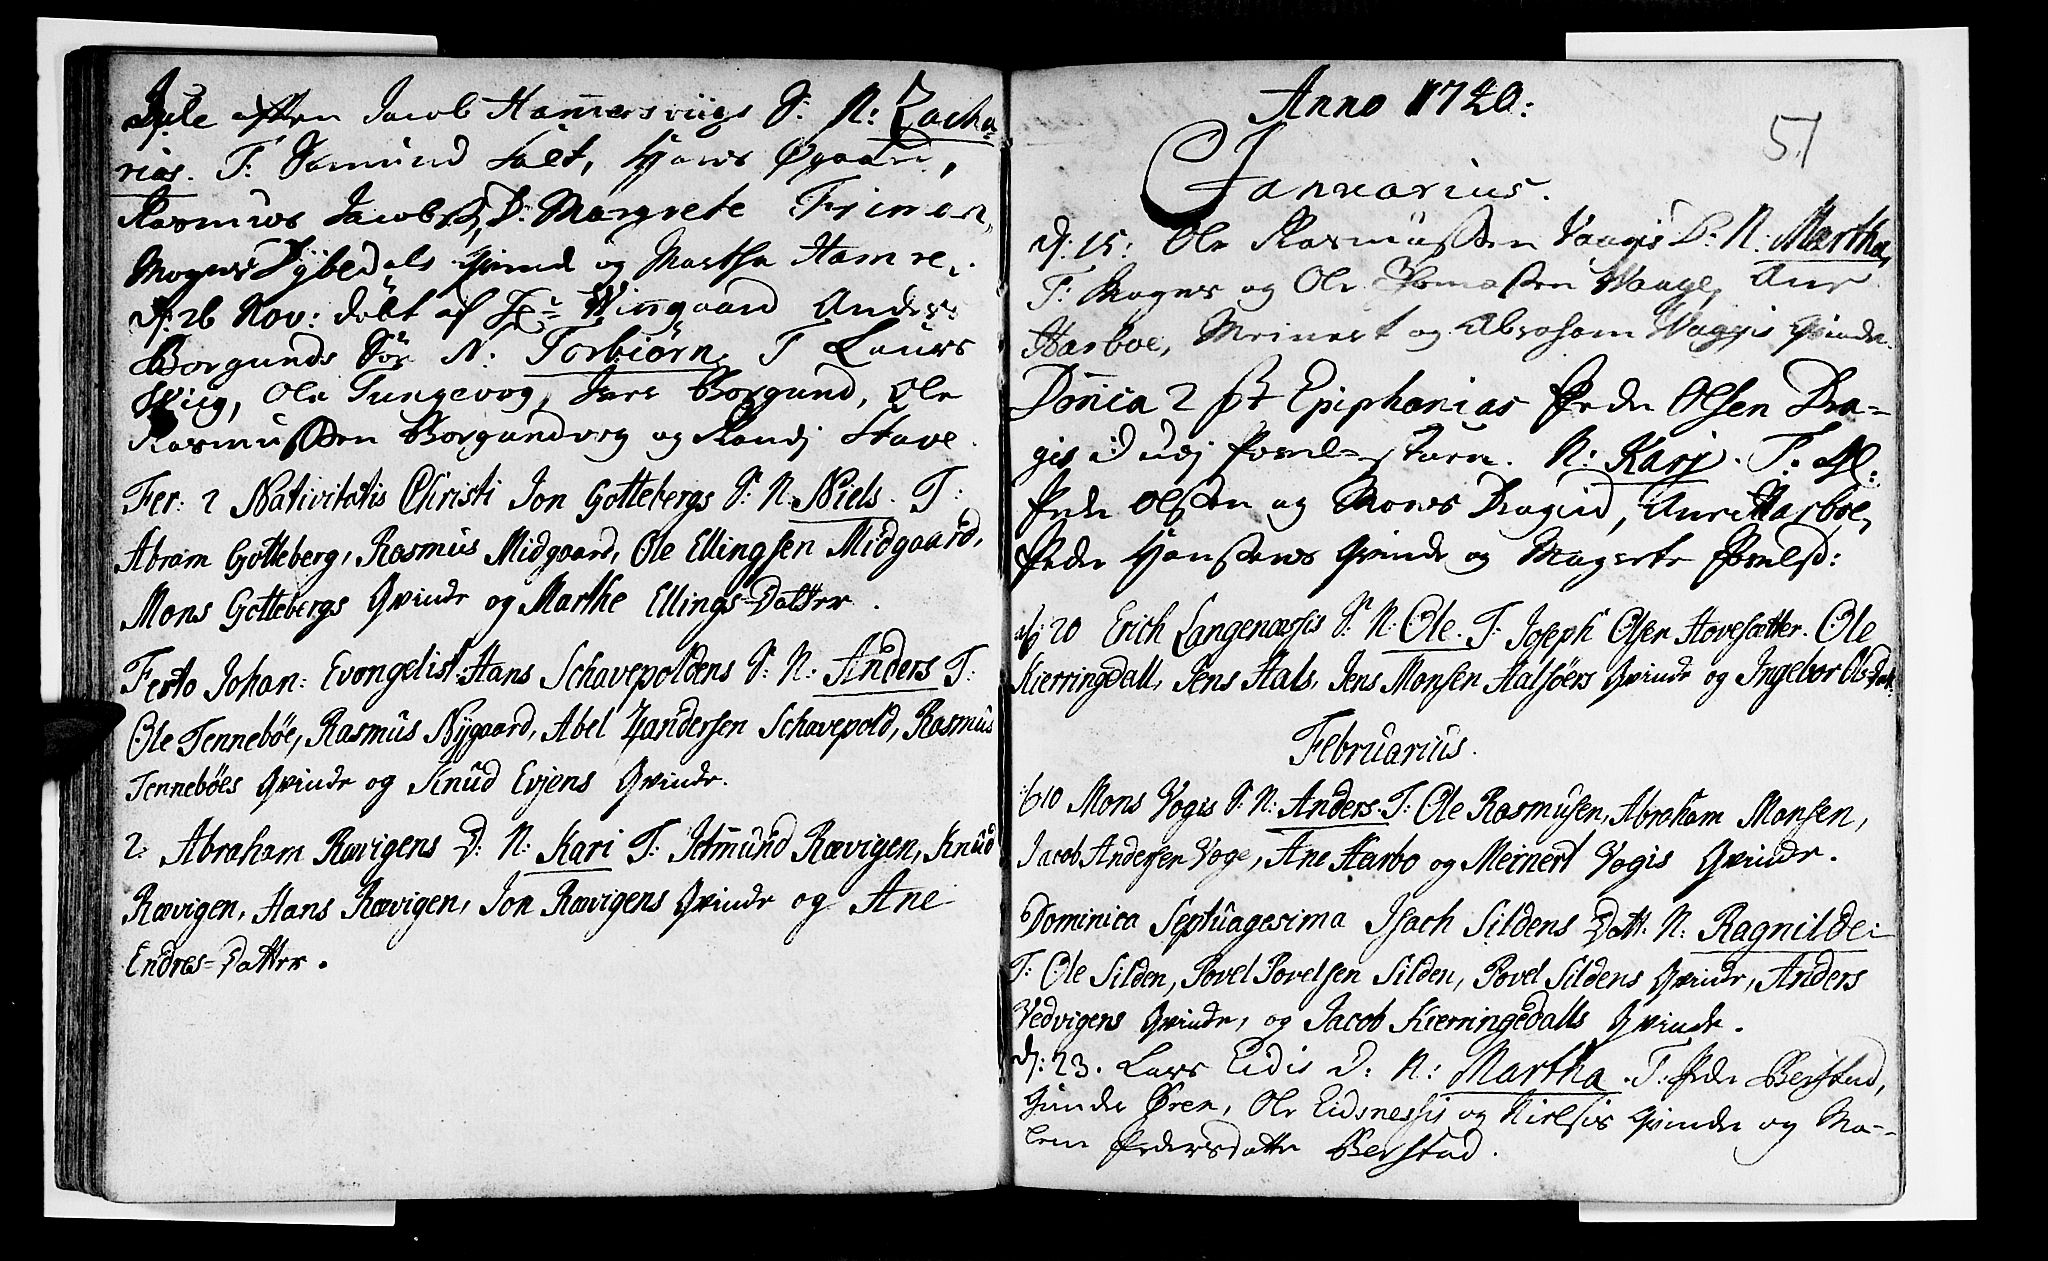 Jule aften Jacob Hammersviigs S: N: Zacha=
rias. T: Samund Salt, Hans Øgaard,
Rasmus Jacobss, D: Margrete Frimon,
Mogns Dybedals Qvinde og Martha Hamre.
d: 26 Nov: døbt af Hr Winngaard Anders
Borgunds Sør N: Torbiörn, T Laurs
Wiig, Ole Tungevog, Jens Borgund, Ole
Rasmussen Borgundvog og Randj Stave.
Fer: 2 Nativitatis Christi Jon Gottebergs S: N: Niels. T:
Abram Gotteberg, Rasmus Midgaard, Ole Ellingsen Midgaard,
Mons Gottebergs Qvinde og Marthe Ellings=Datter.
Festo Johan: Evangelist: Hans Schavepoldens S: N: Anders T:
Ole Tenneböe, Rasmus Nÿgaard, Abel Zandersen Schavepold, Rasmus
Tennebôes Qvinde og Knud Evjens Qvinde.
2: Abraham Rævigens D: N: Kari T: Jetmund Rævigen, Knud
Rævigen, Hans Rævigen, Jon Rævigens Qvinde og Ane
Endres=Datter.
Anno 1720:
51
Januarius.
d: 15: Ole Rasmussen Vaagis D: N: Martha,
T: Mogns og Ole Thomassen Waage, Ane
Harboe, Meinert og Abraham Waggis Qvinde.
Dõnica 2 pt Epiphanias Peder Olsen Dra=
gis N: Karj. T: Hl:
Peder Olssen og Mons Dragid, Ane Harboe,
Peder Hanssens Qvinde og Magrete
d: 20 Erich Langenæssis S: N: Ole. T: Joseph Olsen Hovesætter. Ole
Kierringdall, Jens Hals, Jens Monsen Halsöers Qvinde og Ingebor Olsdat:
Februarius.
10 Mons Vogis S: N: Anders. T: Ole Rasmusen, Abraham Monsen,
Jacob Andersen Voge, Ane Harbo og Meinert Vogis Qvinde.
Dominica Septuagesima Isach Sildens Datt: N: Ragnilde:
T: Ole Silden, Povel Povelsen Silden, Povel Sildens Qvinde, Anders
Vedvigens Qvinde, og Jacob Kierringedalls Qvinde.
d: 23. Lars Eidis D: N: Martha. T: Peder Berstad,
Gunder Øren, Ole Eidsnessis og Nielsis Qvinde og Ma=
lene Pedersdatter Berstad.